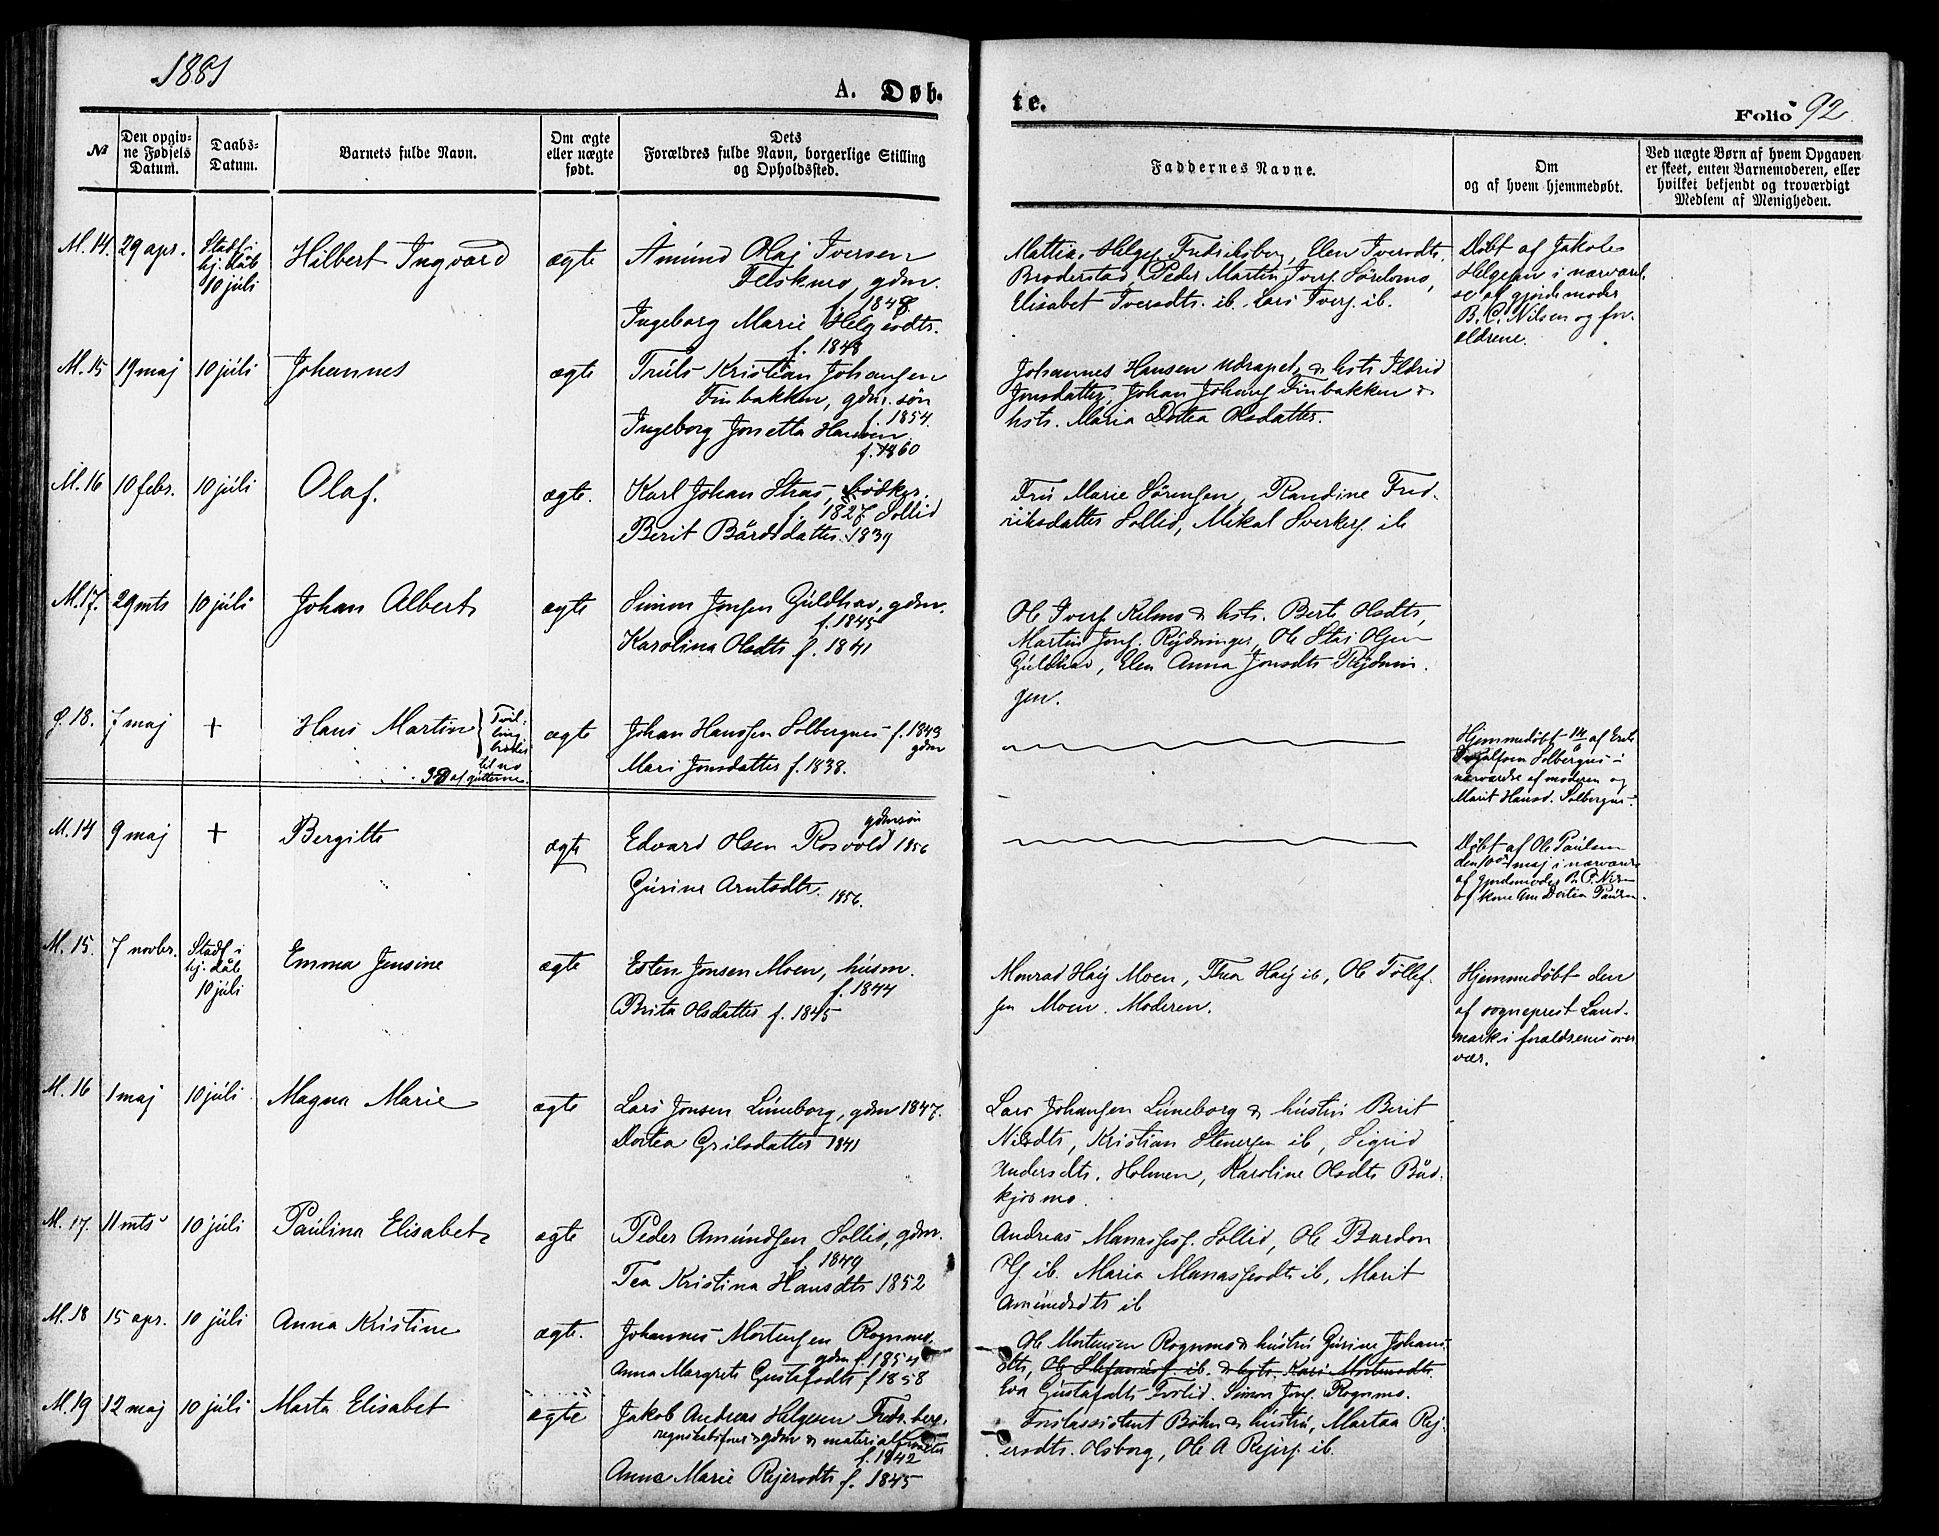 1881
A. Døb-
te.
Folio 92.
№
Den opgiv-
ne Fødsels
Datum.
Daabs-
Datum.
Barnets fulde Navn.
Om ægte
eller uægte
født.
Dets
Forældres fulde Navn, borgerlige Stilling
og Opholdssted.
Faddernes Navne.
Om
og af hvem hjemmedøbt.
Ved uægte Børn af hvem Opgaven
er skeet, enten Barnemoderen, eller
hvilket bekjendt og troværdigt
Medlem af Menigheden.
M. 14. 29 apr.
Stadf. i
hj. dåb
10 júli
Hilbert Ingvard
ægte
Amúnd Olaj Iversen
gdm.
f. 1848
Ingeborg Marie Helgesdtr.
f. 1848
Mattias Helges. Fredriksberg, Elen Iversdtr.
Broderstad, Peder Martin Ivers. Sörelvmo,
Elisabet Iversdtr. ib. Lars Ivers. ib.
Döbt af Jakob
Helgesen i nærværel-
se af gjordemoder
B. C. Nilsen og for-
ældrene.
M. 15 19 maj 10 júli
Johannes
ægte
Trúls Kristian Johansen
Finbakken, gdm. søn
f. 1854.
Ingeborg Jonetta Hansen
f. 1860
Johannes Hansen Udrapet & hstr. Ildrid
Jonsdatter, Johan Johans. Finbakken &
hstr. Maria Dortea Olsdatter.
M. 16 10 febr. 10 júli
Olaf.
ægte.
Karl Johan Stras, bödker.
f. 1827. Sollid
Berit Bårdsdatter. 1839
Frú Marie Sörensen, Randine Fred-
riksdatter Sollid, Mikal Sverkers. ib
M. 17. 29 mts 10 júli
Johan Albert
ægte
Simon Jonsen Gúldhav, gdm.
f. 1845
Karolina Olsdtr f. 1841
Ole Ivers. Kelmo & hstr. Berte Olsdtr,
Martin Jons. Rydninger, Ole Olsen
Gúldhav, Elen Anna Jonsdtr Rydnin-
gen.
18. 7 maj
+
Hans Martin
Tvil-
ling
broder
til no
38 af gútterne.
ægte
Johan Hanssen Solbergnes f. 1843
gdm
Mari Jonsdatter f. 1838.
Hjemmedöbt 14/6 af Erik
Solbergnes i
nærværelse af moderen og
Marit Hansd. Solbergnes.
M. 14 9 maj
+
Bergitte
ægte
gdmsön
Edvard Olsen Rosvold 1856
Gúrine Arntsdtr. 1856.
Döbt af Ole Paúlsen
den 10de maj i nærværelse
af gjordemoder B. C. Nilsen
og kone Ane Dortea Paúlsen.
M. 15. 7 novbr.
Stadf. i
hj. dåb
10 júli
Emma Jensine
ægte
Esten Jonsen Moen, húsm.
f. 1844
Brita Olsdatter f. 1845
Monrad Haij Moen, Thea Haij ib, Ole Tollef-
sen Moen. Moderen.
Hjemmedöbt den
af sogneprest Land-
mark i forældrenes over
vær.
M. 16 1 maj 10 júli
Magna Marie
ægte
Lars Jonsen Lúneborg, gdm 1847.
Dortea Grilsdatter 1841
Lars Johansen Lúneborg & hústrú Berit
Nilsdtr, Kristian Stenersen ib, Sigrid
Andersdtr. Holmen, Karoline Olsdtr Båd-
kjosmo.
M. 17. 11 mts 10 júli
Paúlina Elisabet
ægte
Peder Amúndsen Sollid, gdm.
f. 1849
Tea Kristina Hansdtr 1852
Andreas Manasses. Sollid, Ole Bardon
ib. Maria Manassesdtr ib, Marit
Amúndsdtr ib
M. 18 15 apr. 10 júli
Anna Kristine
ægte.
Johannes Mortensen Rognmo.
gdm f. 1854
Anna Margrete Gústafsdtr f 1858
Ole Mortensen Rognmo & hústrú Gúrine Johans-
dtr, Ole Stefanús. ib. & hstr. Kari Mortensdtr.
Eva Gústafsdtr Simon Jons. Rognmo.
M. 19 12 maj 10 júli
Marta Elisabet
ægte
Jakob Andreas Helgesen Fredr.berg.
regnskabsförer, gdm & materialforvalter
f. 1842
Anna Marie Rejersdtr f. 1845
Forstassistent Böhn & hústrú, Martha Rej-
ersdtr. Olsborg, Ole A. Rejers. ib.